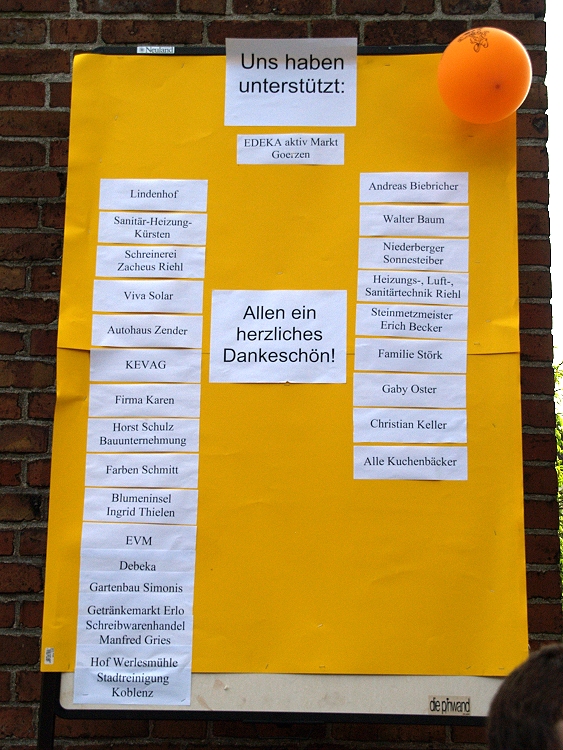 Neuland
Uns haben
unterstützt:
EDEKA aktiv Markt
Goerzen
Lindenhof
Sanitär-Heizung-
Kürsten
Schreinerei
Zacheus Riehl
Viva Solar
Autohaus Zender
KEVAG
Firma Karen
Horst Schulz
Bauunternehmung
Farben Schmitt
Blumeninsel
Ingrid Thielen
EVM
Debeka
Gartenbau Simonis
Getränkemarkt Erlo
Schreibwarenhandel
Manfred Gries
Hof Werlesmühle
Stadtreinigung
Koblenz
Allen ein
herzliches
Dankeschön!
Andreas Biebricher
Walter Baum
Niederberger
Sonnesteiber
Heizungs-, Luft-,
Sanitärtechnik Riehl
Steinmetzmeister
Erich Becker
Familie Störk
Gaby Oster
Christian Keller
Alle Kuchenbäcker
die pinwand